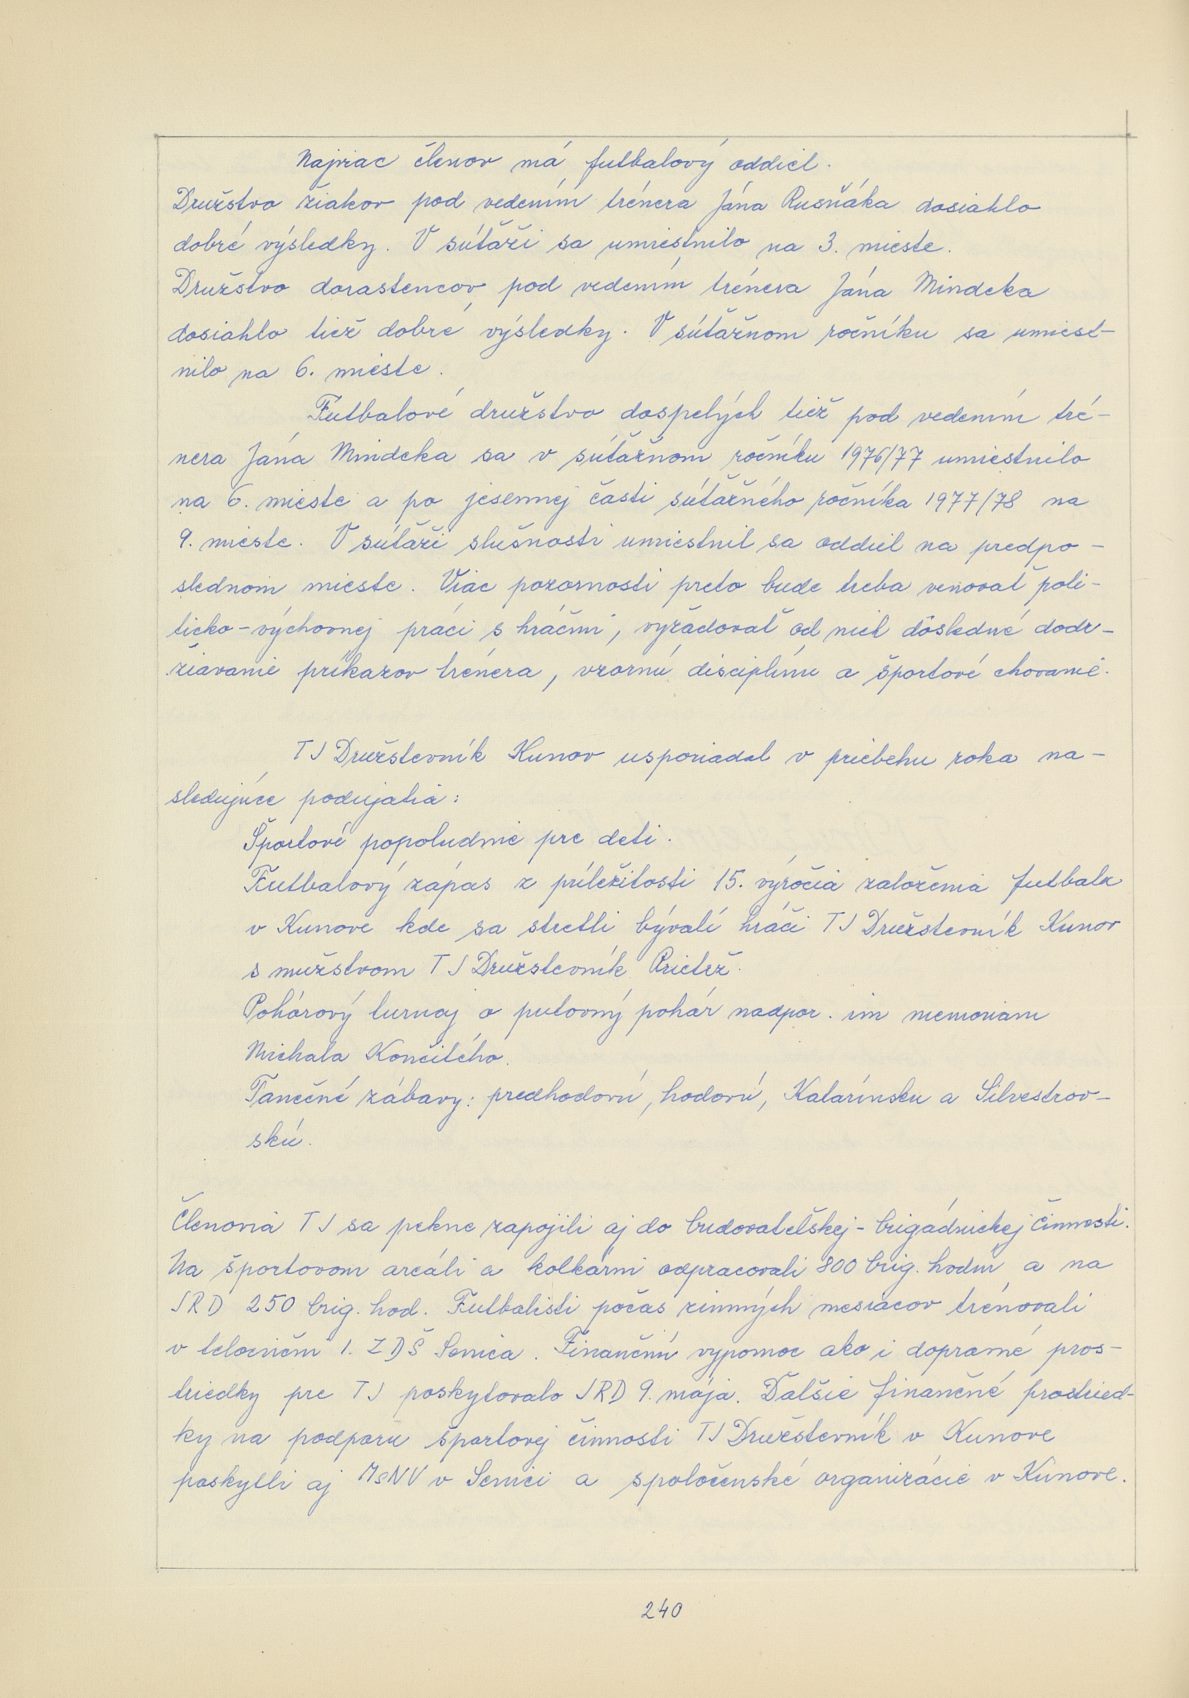 Najviac členov má futbalový oddiel.
Družstvo žiakov pod vedením trénera Jána Rusňáka dosiahlo
dobré výsledky. V súťaži sa umiestnilo na 3. mieste.
Družstvo dorastencov pod vedením trénera Jána Mindeka
dosiahlo tiež dobré výsledky. V súťažnom ročníku sa umiest-
nilo na 6. mieste.
Futbalové družstvo dospelých tiež pod vedením tré-
nera Jána Mindeka sa v súťažnom ročníku 1976/77 umiestnilo
na 6. mieste a po jesennej časti súťažného ročníka 1977/78 na
9. mieste. V súťaži slušnosti umiestnil sa oddiel na predpo-
slednom mieste. Viac pozornosti preto bude treba venovať poli-
ticko-výchovnej práci s hráčmi, vyžadovať od nich dôsledné dodr-
žiavanie príkazov trénera, vzornú disciplínu a športové chovanie.
TJ Družstevník Kunov usporiadal v priebehu roka na-
sledujúce podujatia:
Športové popoludnie pre deti.
Futbalový zápas z príležitosti 15. výročia založenia futbalu
v Kunove kde sa stretli bývalí hráči TJ Družstevník Kunov
s mužstvom TJ Družstevník Prietrž.
Pohárový turnaj o putovný pohár nadpor. im memoriam
Michala Končitého.
Tanečné zábavy: predhodovú, hodovú, Katarínsku a Silvestrov-
skú.
Členovia TJ sa pekne zapojili aj do budovateľskej-brigádnickej činnosti.
Na športovom areáli a kolkárni odpracovali 800 brig. hodín a na
JRD 250 brig. hod. Futbalisti počas zimných mesiacov trénovali
v telocvični 1. ZDŠ Senica. Finančnú vypomoc ako i dopravné pros-
triedky pre TJ poskytovalo JRD 9. mája. Ďalšie finančné prostried-
ky na podporu športovej činnosti TJ Družstevník v Kunove
poskytli aj MsNV v Senici a spoločenské organizácie v Kunove.
240